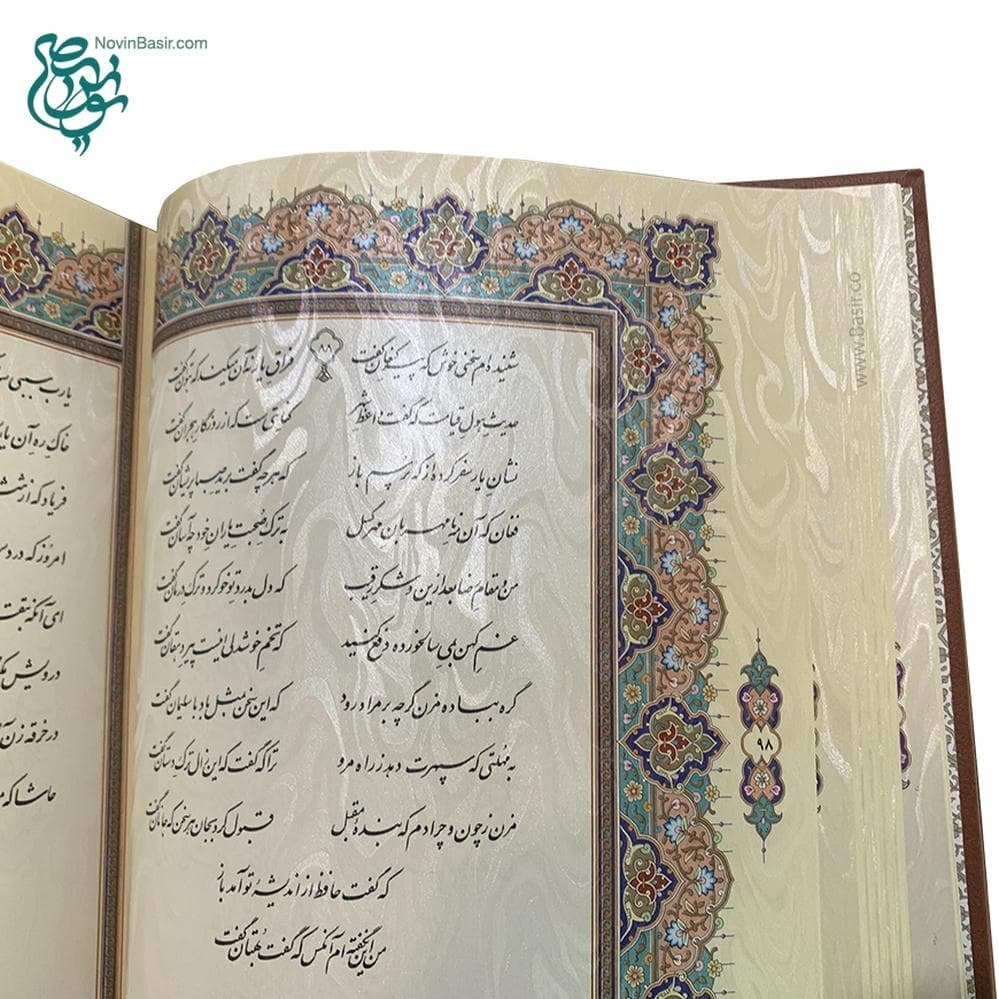 NovinBasir.com
نوین بصیر
www.Basir.co
۸۸
شنیده‌ام سخنی خوش که پیر کنعان گفت
فراق یار نه آن می‌کند که بتوان گفت
حدیث هول قیامت که گفت واعظ شهر
کنایتی است که از روزگار هجران گفت
نشان یار سفرکرده از که پرسم باز
که هر چه گفت برید صبا پریشان گفت
فغان که آن نامهربان مهرگسل
به ترک صحبت یاران خود چه آسان گفت
من و مقام رضا بعد ازین و شکر رقیب
که دل به درد تو خو کرد و ترک درمان گفت
غم کهن به می سالخورده دفع کنید
که تخم خوشدلی اینست پیر دهقان گفت
گره به باد مزن گرچه بر مراد رود
که این سخن به مثل باد با سلیمان گفت
به مهلتی که سپهرت دهد ز راه مرو
ترا که گفت که این زال ترک دستان گفت
مزن ز چون و چرا دم که بنده مقبل
قبول کرد به جان هر سخن که جانان گفت
که گفت حافظ از اندیشه تو آمد باز
من این نگفته‌ام آنکس که گفت بهتان گفت
۹۸
یارب سببی
خاک ره آن
فریاد که از شش
امروز که در
ای آنکه
درویش
در خرقه زن
حاشا که